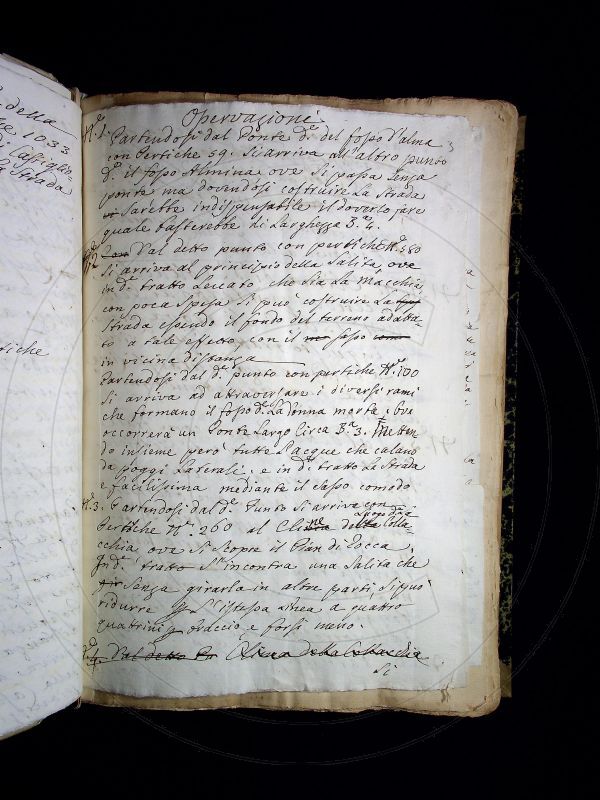 della
1033
di Castiglio
la Strada
rtiche
Osservazioni
N.º 1. Partendosi dal Ponte d.º del fosso d'alma 3
con Pertiche 59. Si arriva all'altro punto
d.º il fosso Almina ove Si passa Senza
ponte ma dovendosi costruire La Strada
Sarebbe indispensabile il doverlo fare
quale basterebbe di Larghezza B.ª 4.
N.º 2 Dal detto punto con pertiche N.º 580
Si arriva al principio della Salita, ove
in d.º tratto Leccato che Sia La Macchia,
con poca Spesa Si può costruire La
Strada essendo il fondo del terreno adatta-
to a tale effetto con il sasso
in vicina distanza
Partendosi dal d.º punto con pertiche N.º 100
Si arriva ad attraversare i diversi rami
che formano il fosso d.º La donna morta, ove
occorrerà un Ponte Largo Circa B.ª 3. Metten
do insieme però tutte L'acque che calano
da poggi Laterali, e in d.º tratto La Strada
e facilissima mediante il Sasso comodo
N.º 3. Partendosi dal d.º Punto Si arriva con
Pertiche N.º 260 al della Colla-
cchia ove Si Scopre il Pian di Rocca,
In d.º tratto S'incontra una Salita che
Senza girarla in altre parti, Si può
ridurre L'istessa a quattro
quattrini braccio e forsi meno.
N.º 4. Dal detto della Collacchia
Si